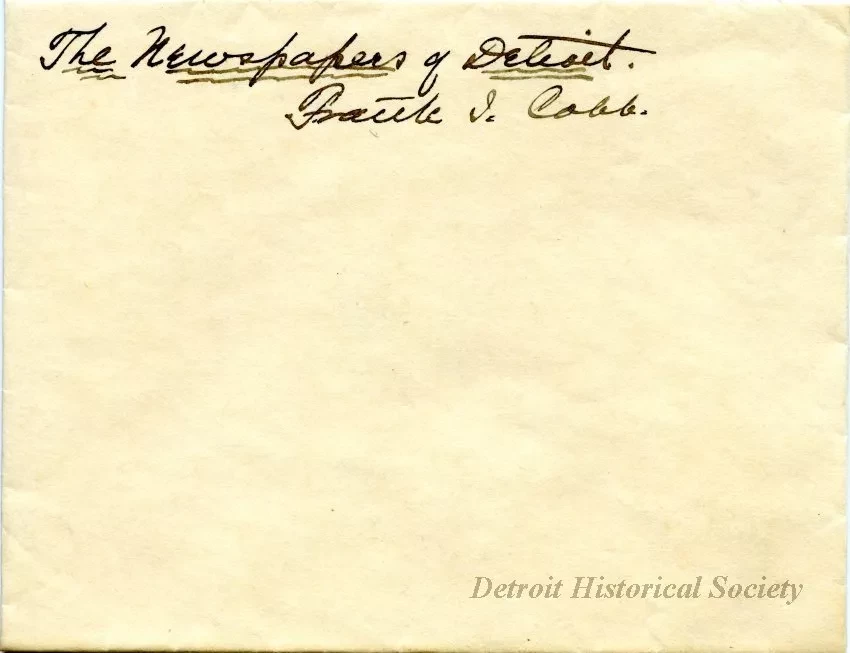 The Newspapers of Detroit.
Frank I. Cobb.
Detroit Historical Society